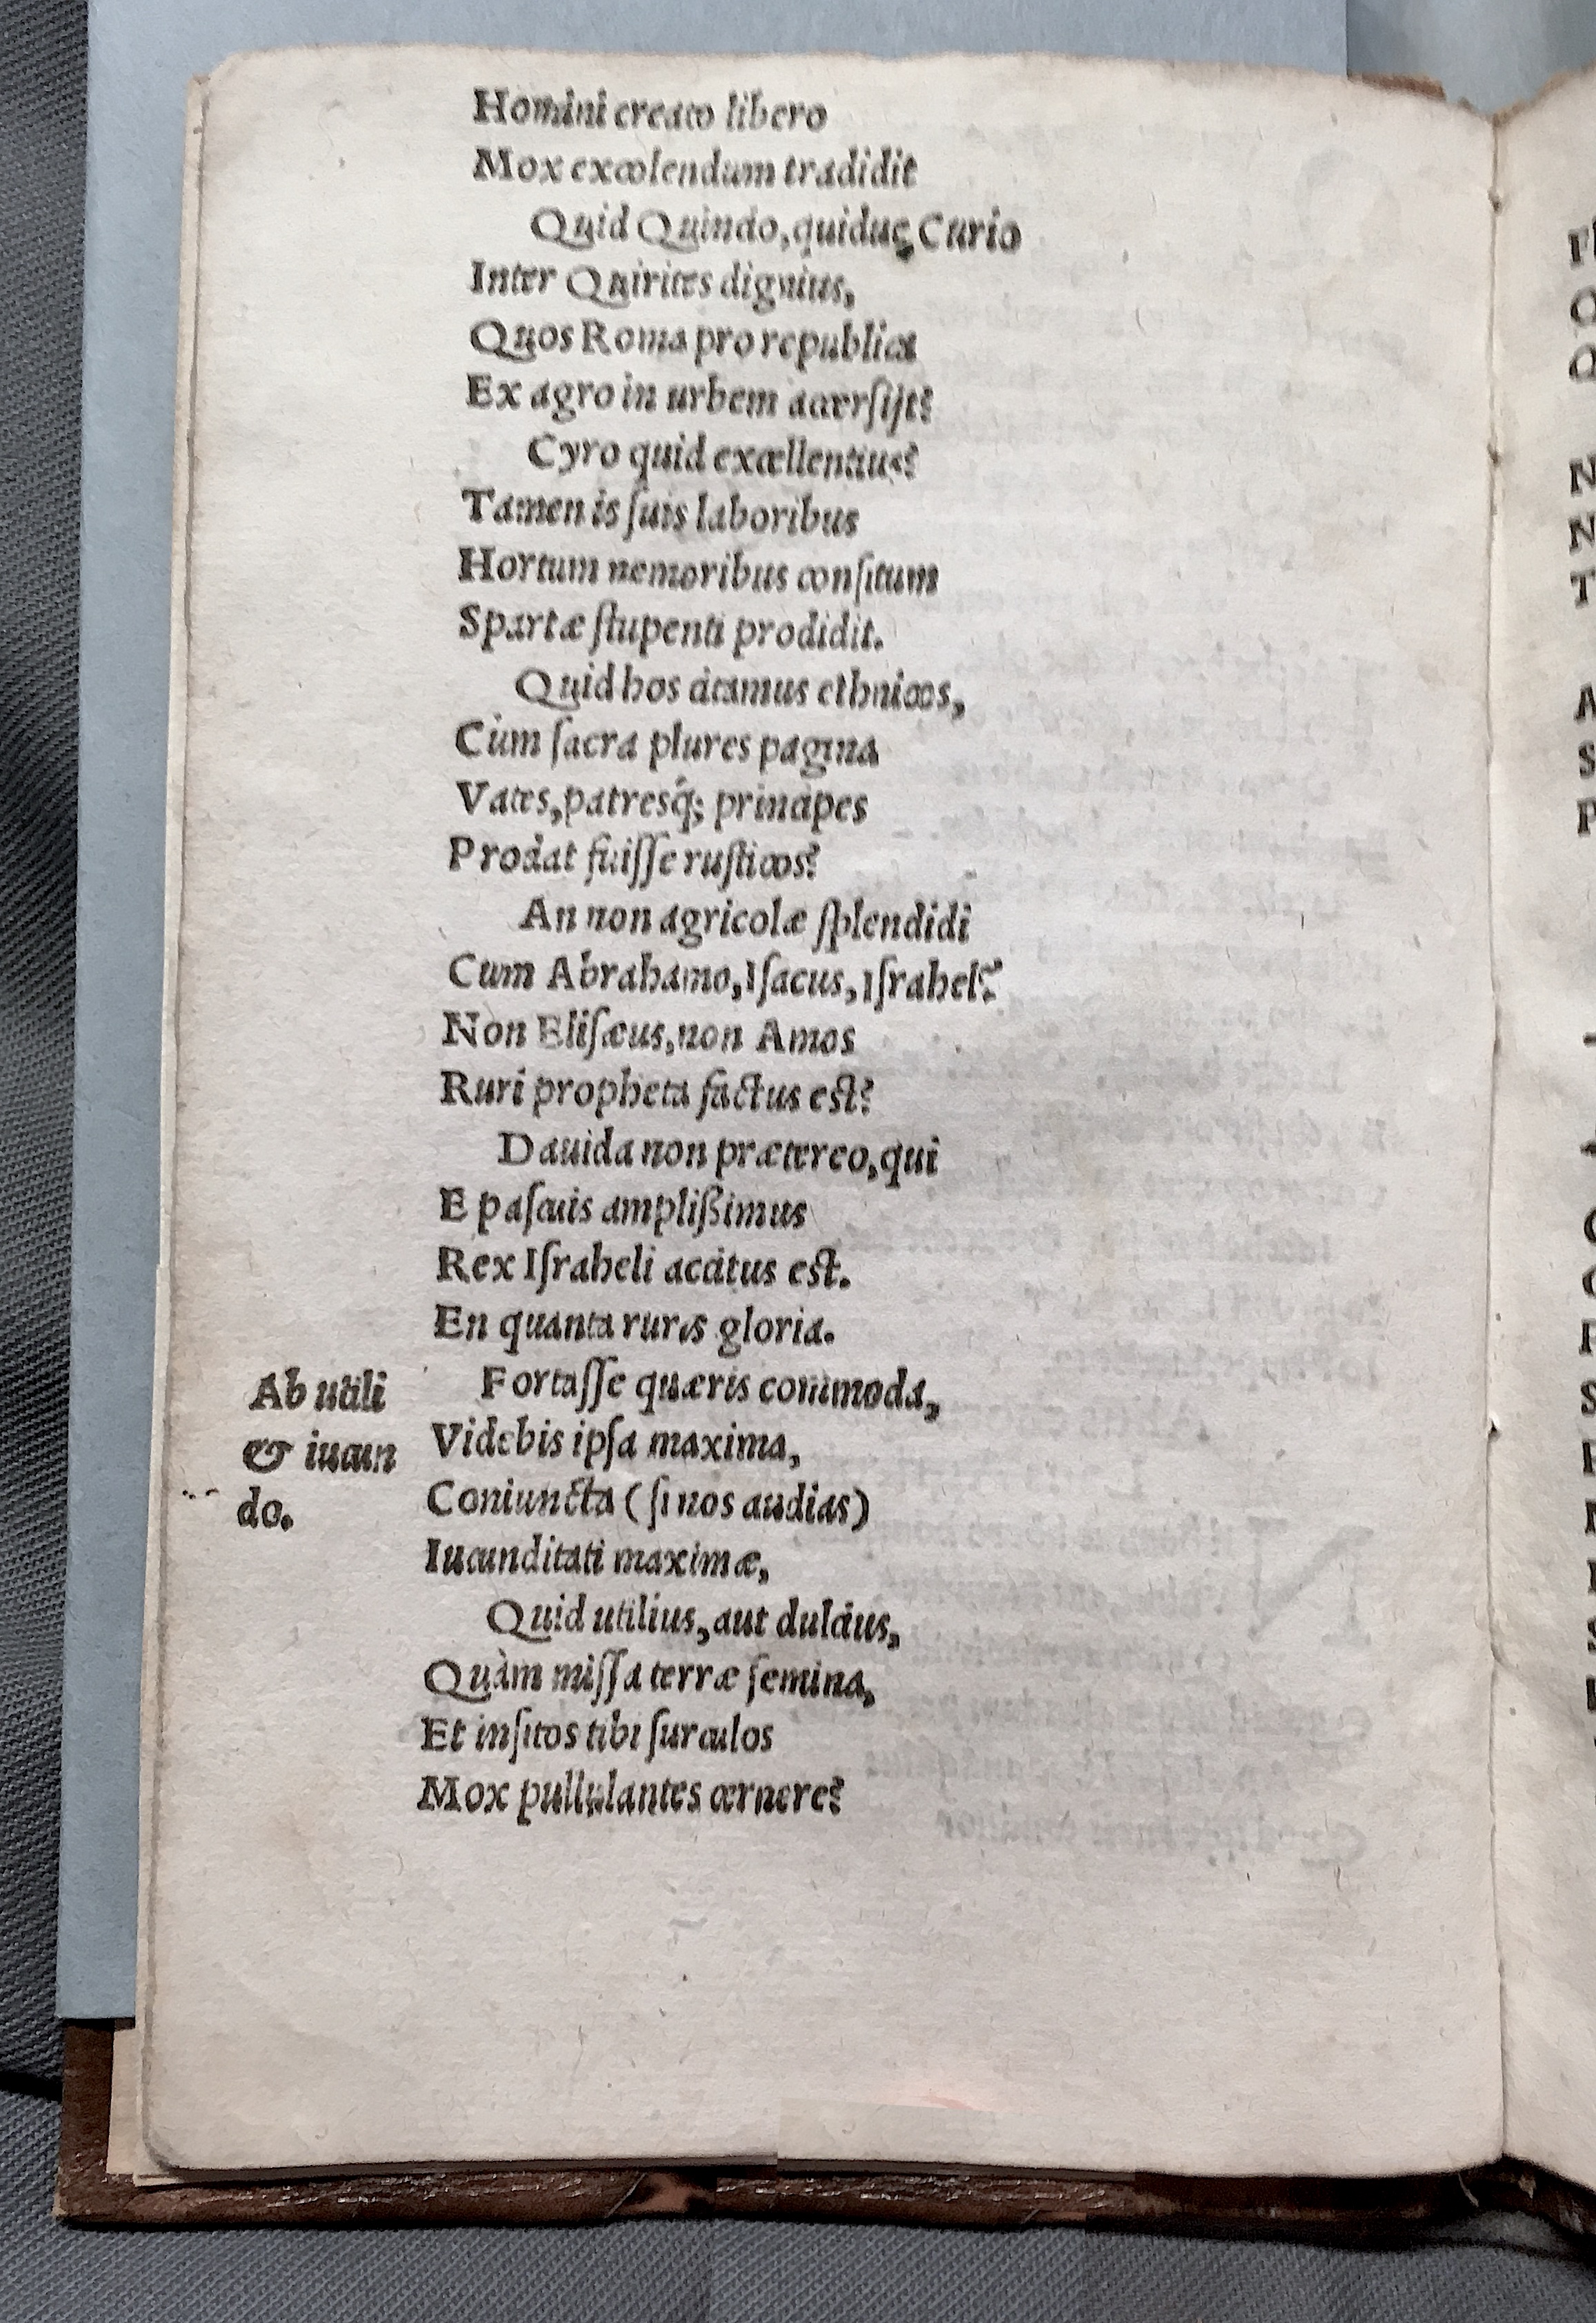 Homini creato libero
Mox excolendum tradidit
Quid Quindo, quidue Curio
Inter Quirites dignius,
Quos Roma pro republica
Ex agro in urbem acersijt?
Cyro quid excellentius?
Tamen is ſuis laboribus
Hortum nemoribus conſitum
Spartæ ſtupenti prodidit.
Quid hos citamus ethnicos,
Cùm ſacra plures pagina
Vates, patresq́; principes
Prodat fuiſſe ruſticos?
An non agricolæ ſplendidi
Cum Abrahamo, Iſacus, Iſrahel?
Non Eliſæus, non Amos
Ruri propheta factus eſt?
Dauida non prætereo, qui
E paſcuis amplißimus
Rex Iſraheli accitus eſt.
En quanta ruris gloria.
Ab utili
& iucun
do.
Fortaſſe quæris commoda,
Videbis ipſa maxima,
Coniuncta (ſi nos audias)
Iucunditati maximæ,
Quid utilius, aut dulcius,
Quàm miſſa terræ ſemina,
Et inſitos tibi ſurculos
Mox pullulantes cernere?